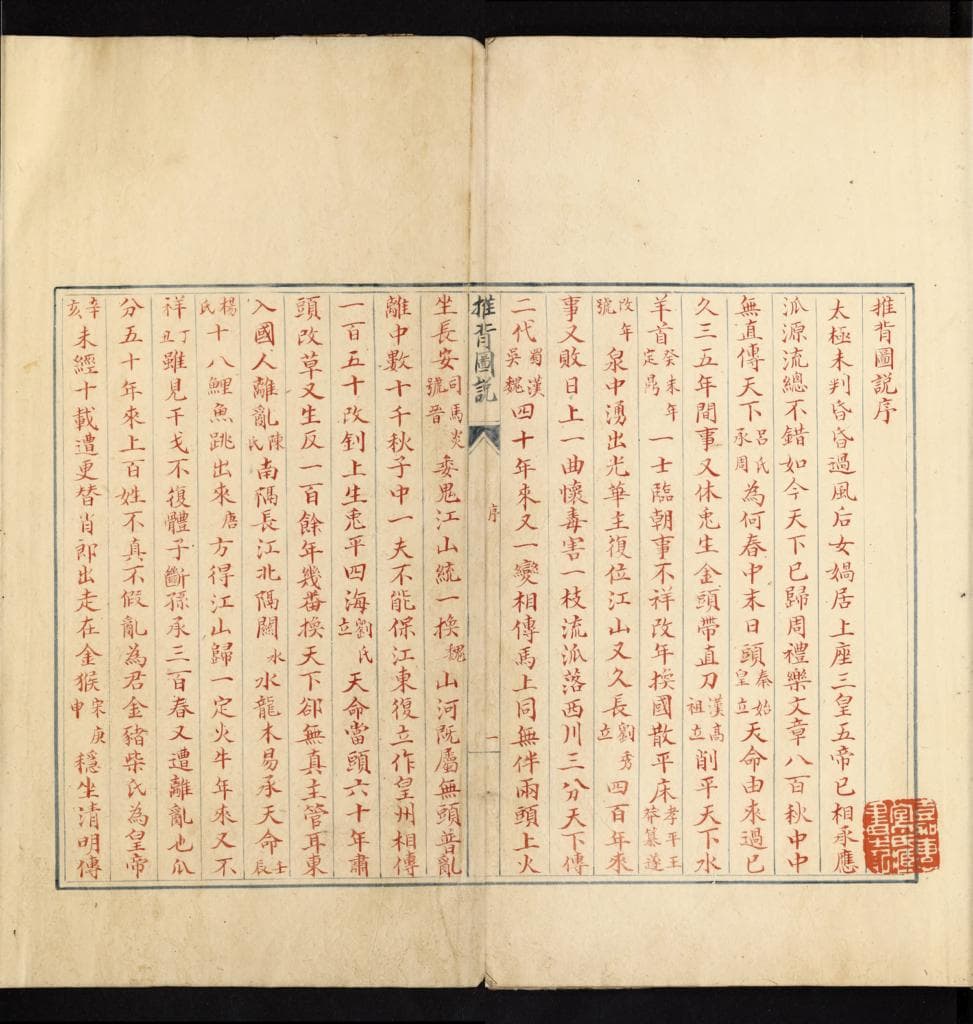 推背圖說序
太極未判昏昏過風后女媧居上座三皇五帝已相承應
派源流總不錯如今天下已歸周禮樂文章八百秋中中
無直傳天下呂氏承周為何春中末日頭秦始皇立天命由來過已
久三五年間事又休兎生金頭帶直刀漢高祖立削平天下水
羊首癸未年定鼎一士臨朝事不祥改年換國散平床孝平王莽篡遂
改年號泉中湧出光華主復位江山又久長劉秀立四百年來
事又敗日上一曲懷毒害一枝流派落西川三分天下傳
二代蜀漢吳魏四十年來又一變相傳馬上同無伴兩頭上火
推背圖說
序
一
坐長安司馬炎號晉委鬼江山統一換魏山河既屬無頭普亂
離中數十千秋子中一夫不能保江東復立作皇州相傳
一百五十改釗上生兎平四海劉氏立天命當頭六十年肅
頭改草又生反一百餘年幾番換天下卻無真主管耳東
入國人離亂陳氏南隔長江北隔關水水龍木易承天命壬辰
楊氏十八鯉魚跳出來唐方得江山歸一定火牛年來又不
祥丁丑雖見干戈不復體子斷孫承三百春又遭離亂也瓜
分五十年來上百姓不真不假亂為君金豬柴氏為皇帝
辛亥未經十載遭更替肖郎出走在金猴宋庚申穩坐清明傳